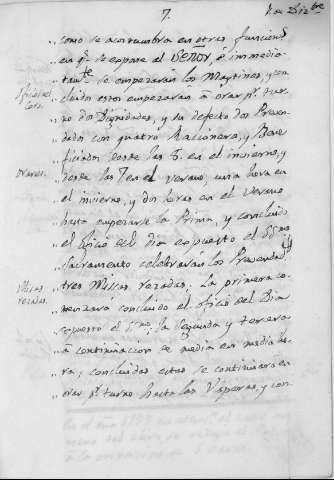 7.
1 de Diz.bre
„como se acostumbra en otras funcion.s
„en q.e se expone el Señor, e inmedia-
„tam.te se empezarán los Maytines, y con-
Oficio del Coro.
„cluidos estos empezarán à orar p.r tur-
„no dos Dignidades, y su defecto dos Preven-
„dados con quatro Racioneros, y Bene-
Orares.
„ficiados desde las 6. en el invierno, y
„desde las 5 en el Verano, una hora en
„el invierno, y dos horas en el Verano
„hasta empezarse la Prima, y concluido
„el oficio del dia expuesto el SSmo
„Sacramento celebrarán los Prevendad.s
Misas rezadas.
„tres Missas rezadas; la primera co-
„menzará concluido el oficio del Dia
„expuesto el S.mo, la segunda y tercera
„à continuacion de media en media ho-
„ra, concluidas estas se continuará en
„orar p.r turno hasta las Visperas, y con-